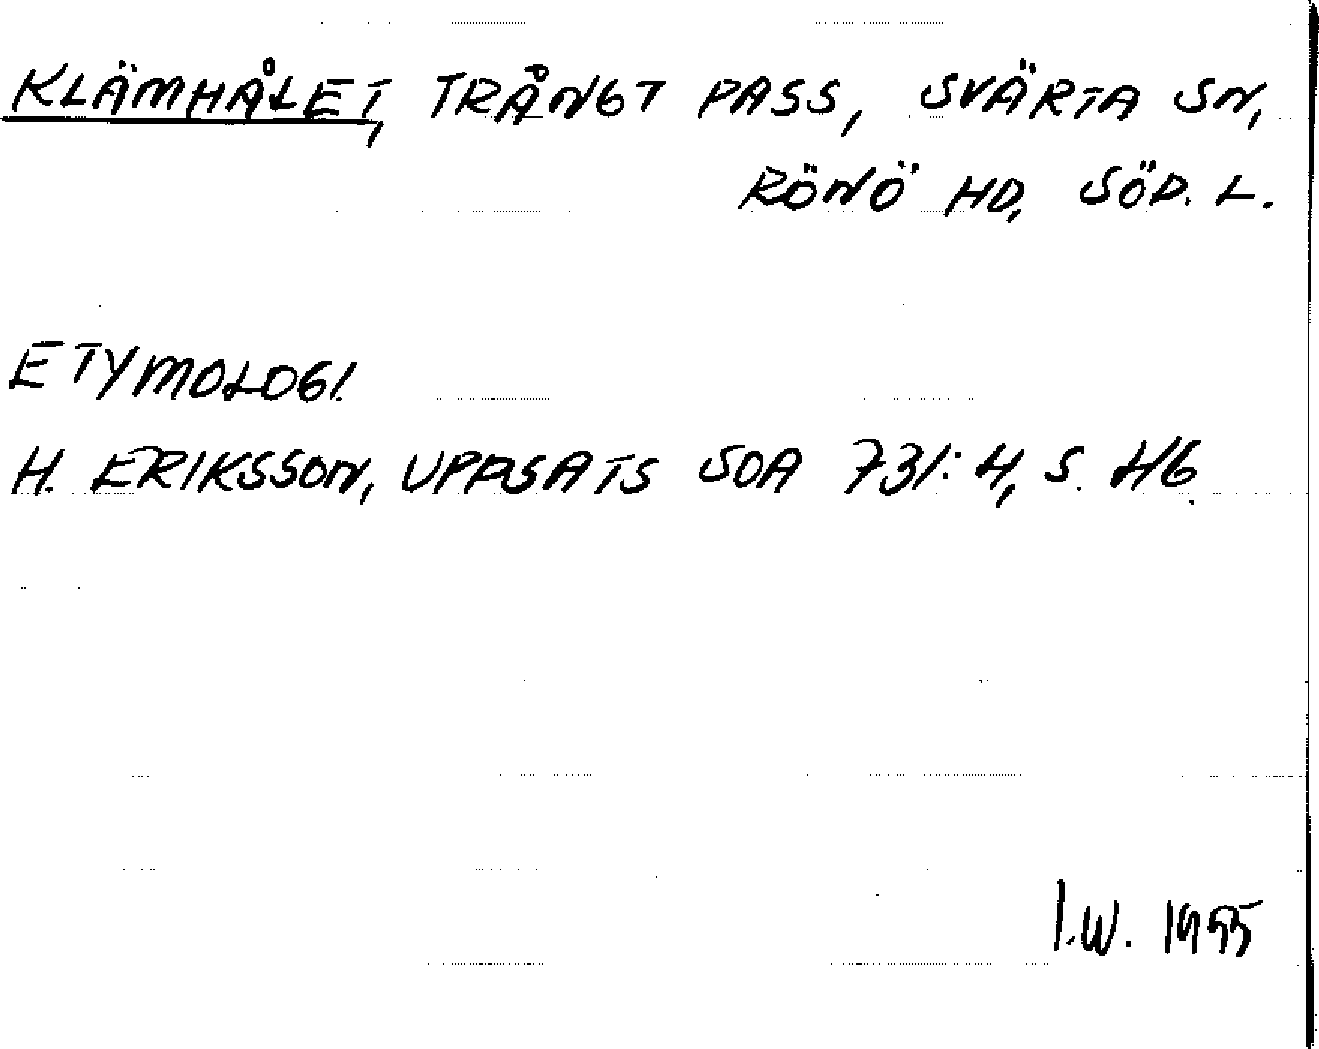 KLÄMHÅLET, TRÅNGT PASS, SVÄRTA SN,
RÖNÖ HD, SÖD. L.
ETYMOLOGI.
H. ERIKSSON, UPPSATS SOA 731:4, S. 46.
I.W. 1955